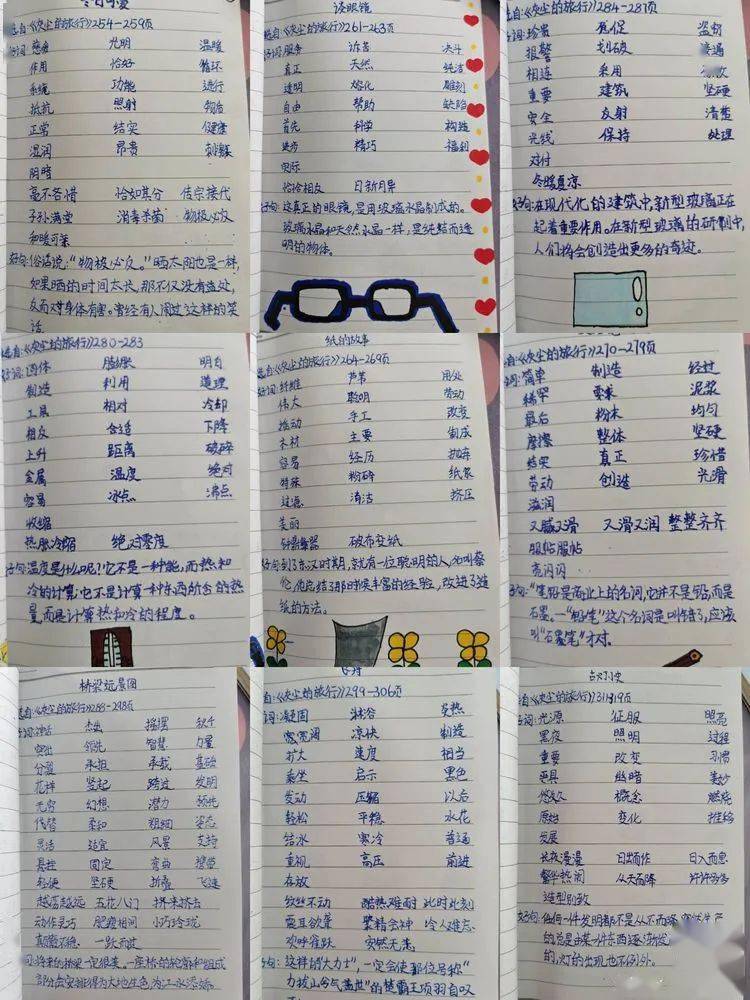 选自:《灰尘的旅行》254-259页
光明 温暖
作用 恰好 循环
系统 功能 进行
抵抗 照射 物质
正常 结实 健康
湿润 昂贵 刺激
阴暗
毫不吝惜 恰如其分 传宗接代
子孙满堂 消毒杀菌 物极必反
和暖可亲
好句:俗话说:“物极必反。”晒太阳也是一样,
如果晒的时间太长,那不仅没有益处,
反而对身体有害。曾经有人闹过这样的笑
话
谈眼镜
选自:《灰尘的旅行》261-263页
好词:服务 诉苦 决斗
真正 天然 纯洁
透明 熔化 雕刻
自由 帮助 缺陷
首先 科学 构造
进步 精巧 福利
实际
恰恰相反 日新月异
好句:这真正的眼镜,是用玻璃水晶制成的。
玻璃水晶和天然水晶一样,是纯洁而透
明的物体。
选自:《灰尘的旅行》284-287页
好词:珍贵 盗窃
报警 划破
相连 采用
重要 建筑 坚硬
安全 反射 清楚
光线 保持 处理
对付
冬暖夏凉
好句:在现代化的建筑中,新型玻璃正在
起着重要作用。在新型玻璃的研制中,
人们将会创造出更多的奇迹。
选自:《灰尘的旅行》280-283
好词:固体 膨胀 明白
制造 利用 道理
工具 相对 冷却
相反 合适 下降
上升 距离 破碎
金属 温度 绝对
容易 冰点 沸点
收缩
热胀冷缩 绝对零度
好句:温度是什么呢?它不是一种能,而热和
冷的计算;它不是计算一种东西所含的热
量,而是计算热和冷的程度。
纸的故事
选自:《灰尘的旅行》264-269页
好词:纤维 芦苇 用处
伟大 聪明 劳动
推动 手工 改变
木材 主要 制成
容易 经历 抛弃
特殊 粉碎 纸浆
过滤 清洁 挤压
美丽
破布变纸
好句:到了东汉时期,就有一位聪明的人,名叫蔡
伦,他总结了那时候丰富的经验,改进了造
纸的方法。
选自:《灰尘的旅行》270-279页
好词:简单 制造 经过
稀罕 要求 泥浆
最后 粉末 均匀
摩擦 整体 坚硬
结实 真正 珍惜
劳动 创造 光滑
滋润
又腻又滑 又滑又润 整整齐齐
服帖服帖
亮闪闪
好句:“笔铅是商业上的名词,它并不是铅,而是
石墨。一“铅笔”这个名词是叫错了,应该
叫“石墨笔”才对。
桥梁远景图
选自:《灰尘的旅行》288-298页
好词:神话 杰出 摇摆 秋千
突出 领先 智慧 力量
分置 承担 承载 基础
花样 竖起 跨过 发明
无穷 幻想 潜力 预先
代替 柔和 粗细 姿态
灵活 适宜 风景 支持
悬挂 固定 弯曲
轻便 坚硬 折叠 飞速
越后越远 五花八门 挤来挤去
动作灵巧 肥瘦相间 小巧玲珑
颠簸不稳 一跃而过
选自:《灰尘的旅行》299-306页
好词:凝固 炎热
宽宽阔 凉快 制造
扩大 速度 相当
乘坐 启示 黑色
发动 压缩 以后
轻松 平稳 水花
结冰 寒冷 普通
重视 高压 前进
存放
纹丝不动 酷热难耐 此时此刻
震耳欲聋 聚精会神 令人难忘
欢呼雀跃 安然无恙
好句:这样的“大力士”,一定会使那位号称“
力拔山兮气盖世”的楚霸王项羽自叹
选自:《灰尘的旅行》311-319页
好词:光源 征服 照亮
黑夜 照明 过程
重要 改变 习惯
更具 幽暗 美妙
悠久 概念 燃烧
原始 变化
发展
长夜漫漫 日出而作 日入而息
繁华热闹 从天而降 许许多多
造型别致
好句:任何一件发明都不是从不而降,突然生产
的,总是由某一件东西逐渐发
的,灯的出现也不例外。